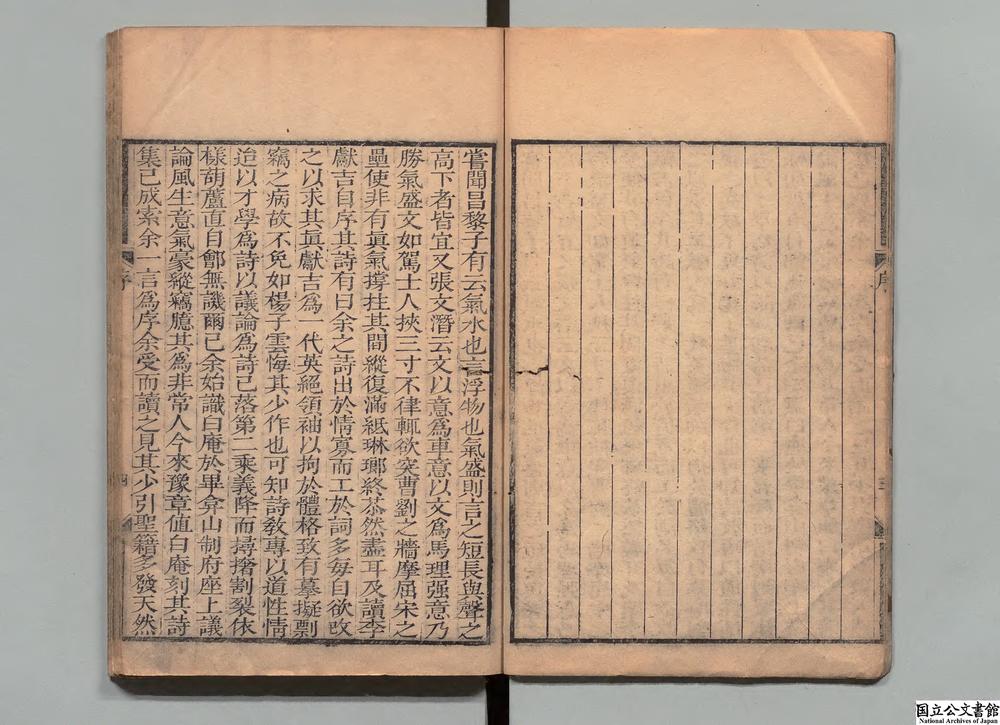 序
三
嘗聞昌黎子有云氣水也言浮物也氣盛則言之短長與聲之
高下者皆宜又張文潛云文以意爲車意以文爲馬理强意乃
勝氣盛文如駕士人挾三寸不律輒欲突曹劉之牆摩屈宋之
壘使非有眞氣撐柱其間縱復滿紙琳瑯終苶然盡耳及讀李
獻吉自序其詩有曰余之詩出於情寡而工於詞多每自欲改
之以求其眞獻吉爲一代英絕領袖以拘於體格致有摹擬剽
竊之病故不免如楊子雲悔其少作也可知詩敎專以道性情
迨以才學爲詩以議論爲詩已落第二乘義降而撏撦割裂依
樣葫蘆直自鄶無譏爾已余始識白庵於畢弇山制府座上議
論風生意氣豪縱竊臆其爲非常人今來豫章値白庵刻其詩
集已成索余一言爲序余受而讀之見其少引聖籍多發天然
序
四
国立公文書館
National Archives of Japan